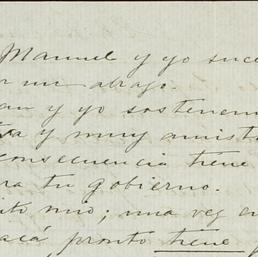 Manuel y yo suce
r un abrazo.
an y yo sostenem
ta y muy amisto
consecuencia tiene
ra tu gobierno.
ito mio; una vez en
acá, pronto tiene